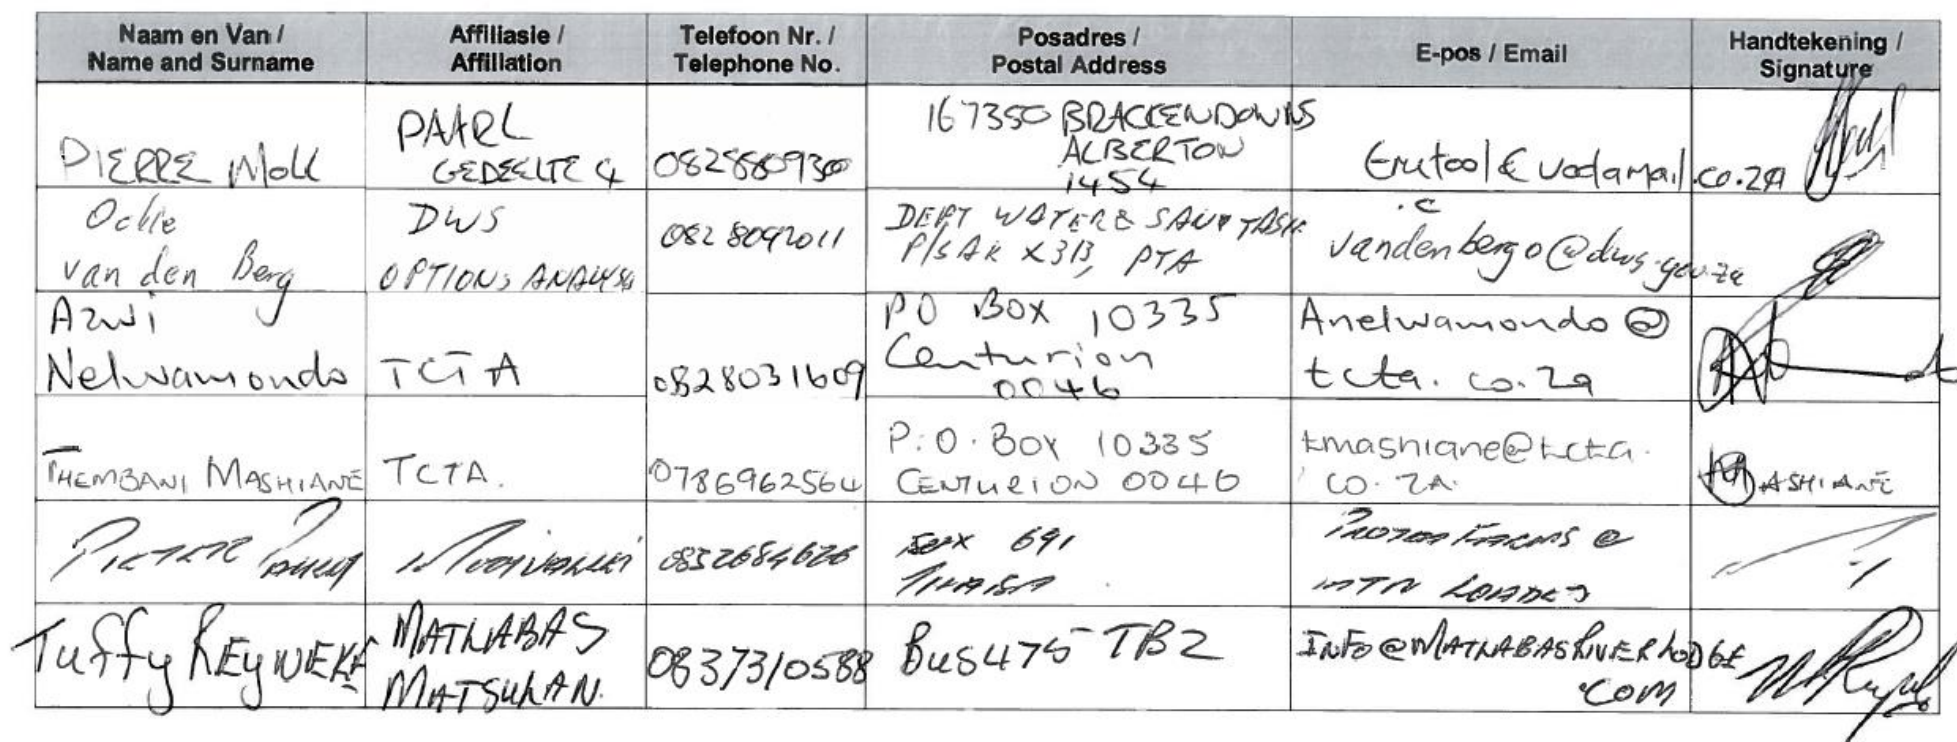 Naam en Van / Name and Surname
Affiliasie / Affiliation
Telefoon Nr. / Telephone No.
Posadres / Postal Address
E-pos / Email
Handtekening / Signature
PIERRE Moll
PAARL
GEDEELTE 4
0828809300
167350 BRACKENDOWNS
ALBERTON
1454
@vodamail.co.za
van den Berg
DWS
OPTIONS ANALYSIS
0828092011
DEPT WATER & SANITASIE
P/SAK X313, PTA
vandenbergo@dws.gov.za
Azwi
Nelwamondo
TCTA
0828031609
PO Box 10335
Centurion
0046
Anelwamondo@
tcta.co.za
THEMBANI MASHIANE
TCTA.
0786962564
P.O. Box 10335
CENTURION 0046
tmashiane@tcta.
co.za.
MASHIANE
PIETER
0832684626
BOX 691
THABA
@
Tuffy REYNEKE
MATLABAS
0837310588
Bus 475 TBZ
INFO@MATLABASRIVERLODGE
.COM